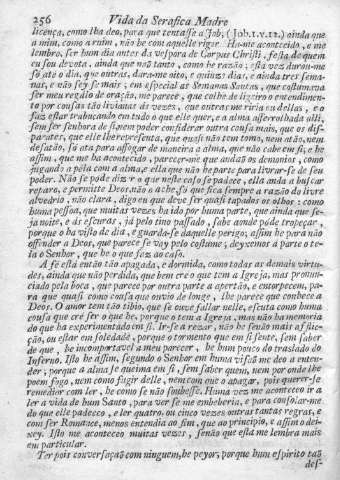 256 Vida da Serafica Madre
licença, como lha deo, para que tentasse a Job, (Job. 1. v. 12.) ainda que
a mim, como a ruim, não he com aquelle rigor. Ha-me acontecido, e me
lembro, ser hum dia antes da vespora de Corpus Christi, festa de quem
eu sou devota, ainda que não tanto, como he razão; esta vez durou-me
só até o dia, que outras, dura-me oito, e quinze dias, e ainda tres sema-
nas, e não sey se mais, em especial as Semanas Santas, que costumava
ser meu regalo de oração, me parece, que colhe de ligeiro o entendimen-
to por cousas tão livianas ás vezes, que outras me riria eu dellas, e o
faz estar trabucando em tudo o que elle quer, e a alma aferrolhada alli,
sem ser senhora de si, nem poder considerar outra cousa mais, que os dis-
parates, que elle lhe representa, que quasi não tem tomo, nem atão, nem
desatão, só ata para affogar de maneira a alma, que não cabe em si; e he
assim, que me ha acontecido, parecer-me que andaõ os demonios, como
jugando a péla com a alma; e ella que não he parte para livrar-se de seu
poder. Não se pode dizer o que neste caso se padece, ella anda a buscar
reparo, e permitte Deos, não o ache, só que fica sempre a razão do livre
alvedrio, não clara, digo eu que deve ser quasi tapados os olhos: como
huma pessoa, que muitas vezes ha ido por huma parte, que ainda que se-
ja noite, e ás escuras, já pelo tino passado, sabe aonde póde tropeçar,
porque o ha visto de dia, e guarda-se daquelle perigo; assim he para não
offender a Deos, que parece se vay pelo costume; deyxemos á parte o te-
la o Senhor, que he o que faz ao caso.
A fé está então tão apagada, e dormida, como todas as demais virtu-
des, ainda que não perdida, que bem crê o que tem a Igreja, mas pronun-
ciado pela boca, que parece por outra parte a apertão, e entorpecem, pa-
ra que quasi como cousa que ouvio de longe, lhe parece que conhece a
Deos. O amor tem tão tibio, que se ouve fallar nelle, escuta como huma
cousa que crê ser o que he, porque o tem a Igreja, mas não ha memoria
do que ha experimentado em si. Ir-se a rezar, não he senão mais afflic-
ção, ou estar em soledade, porque o tormento que em si sente, sem saber
de que, he incomportavel a meu parecer, he hum pouco do traslado do
Inferno. Isto he assim, segundo o Senhor em huma visaõ me deo a enten-
der; porque a alma se queima em si, sem saber quem, nem por onde lhe
poem fogo, nem como fugir delle, nem com que o apagar, pois querer-se
remediar com ler, he como se não soubesse. Huma vez me aconteceo ir a
ler a vida de hum Santo, para ver se me embeberia, e para consolar-me
do que elle padeceo, e ler quatro, ou cinco vezes outras tantas regras, e
com ser Romance, menos entendia ao fim, que ao principio, e assim o dei-
xey. Isto me aconteceo muitas vezes, senão que esta me lembra mais
em particular.
Ter pois conversaçaõ com ninguem, he peyor, porque hum espirito taõ
des-